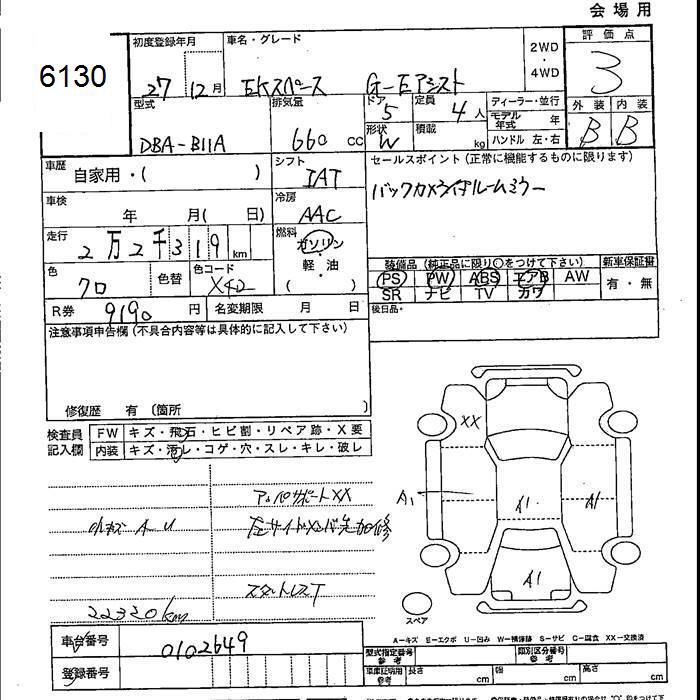 会場用
6130
初度登録年月
27 12月
車名・グレード
EKスペース G-Eアシスト
2WD
・
4WD
評価点
3
型式
DBA-B11A
排気量
660 cc
ドア
5
定員
4人
形状
W
積載
kg
ディーラー・並行
モデル年式 年
ハンドル 左・右
外装 内装
B B
車歴
自家用・( )
シフト
IAT
セールスポイント(正常に機能するものに限ります)
バックカメラ付ルームミラー
車検
年 月( 日)
冷房
AAC
走行
2万2千319 km
燃料
ガソリン
軽・油
( )
色
クロ
色替
色コード
X42
装備品(純正品に限り○をつけて下さい)
PS PW ABS エアB AW
SR ナビ TV カワ
新車保証書
有・無
R券
9190 円
名変期限 月 日
後日品・
注意事項申告欄(不具合内容等は具体的に記入して下さい)
修復歴 有 〔箇所 〕
検査員記入欄
FW キズ・飛石・ヒビ割・リペア跡・X要
内装 キズ・汚レ・コゲ・穴・スレ・キレ・破レ
小キズ A U
22320km
XX
左サイドメンバ先加修
スタットレスT
XX
A1
A1
A1
A1
スペア
A-キズ E-エクボ U-凹み W-補修跡 S-サビ C-腐食 XX-交換済
車台番号
0102649
登録番号
型式指定番号
参考
類別区分番号
参考
車庫証明用
参考
長さ cm
幅 cm
高さ cm